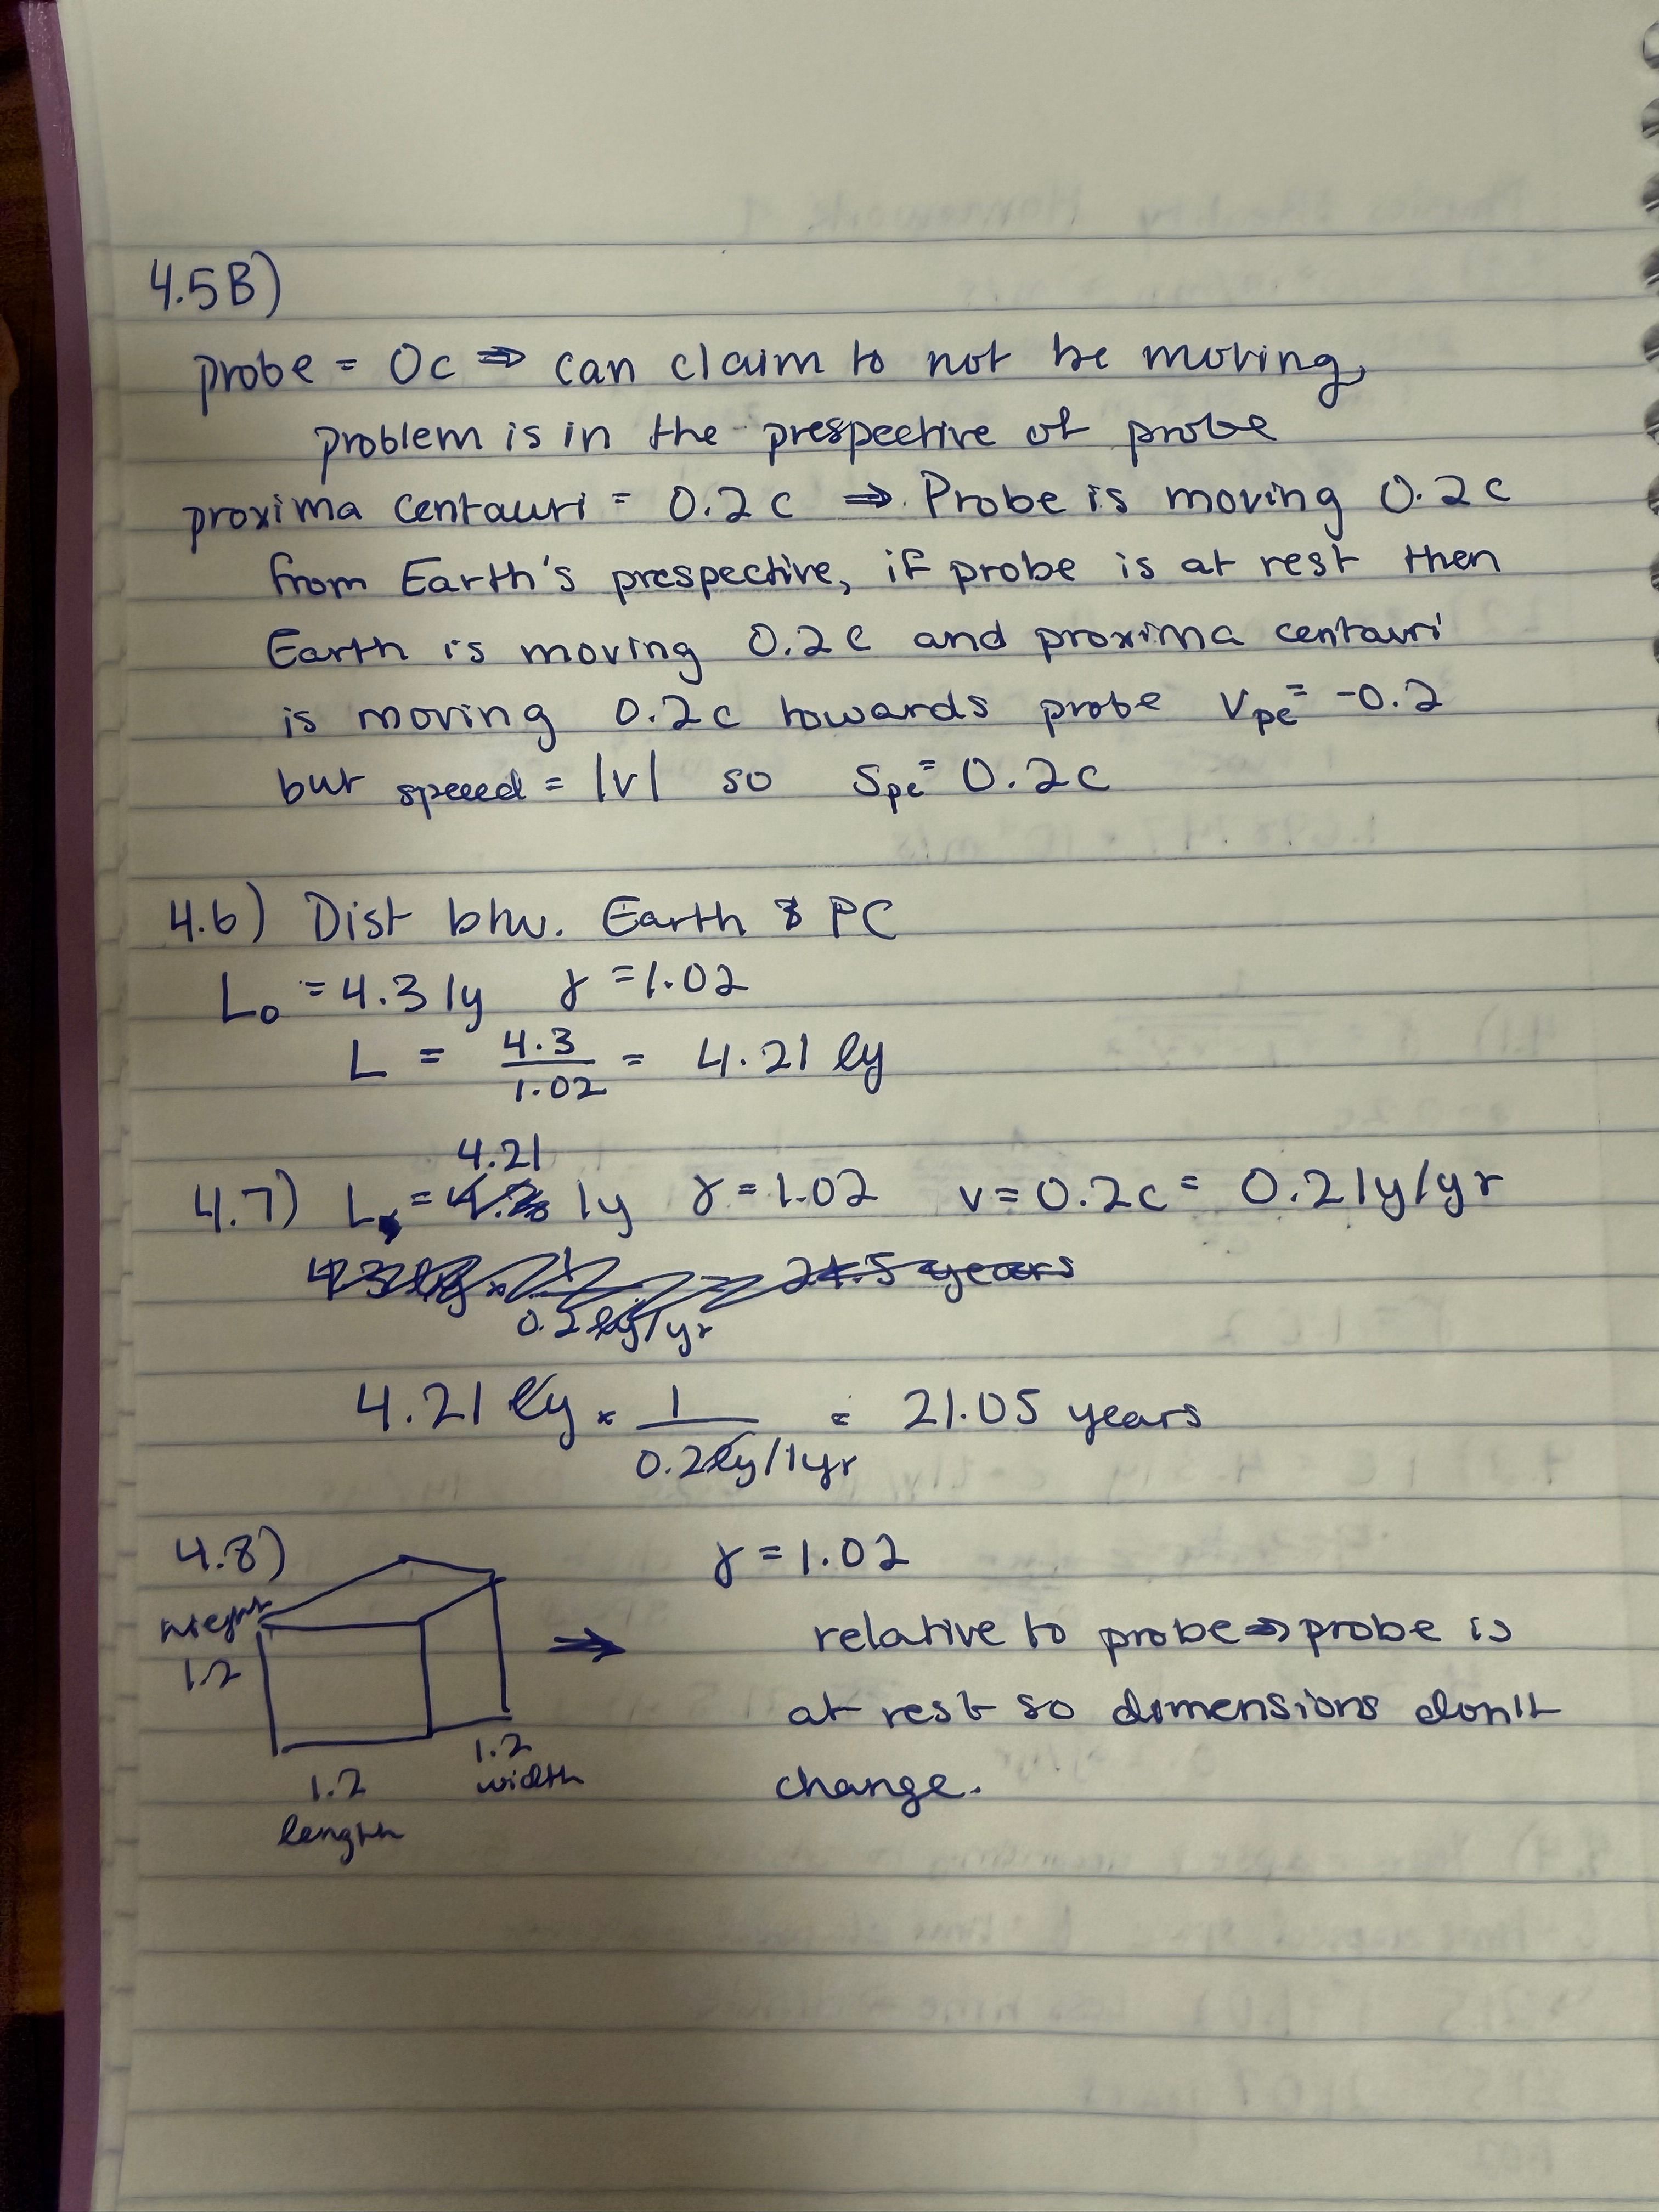 4.5B)
probe = 0c ⇒ can claim to not be moving,
problem is in the prespective of probe
proxima centauri = 0.2c ⇒ Probe is moving 0.2c
from Earth's prespective, if probe is at rest then
Earth is moving 0.2c and proxima centauri
is moving 0.2c towards probe Vpc = -0.2
but speeed = |v| so Spc = 0.2c
4.6) Dist btw. Earth & PC
L₀ = 4.3 ly γ = 1.02
L = 4.3/1.02 = 4.21 ly
4.21
4.7) L = ly γ = 1.02 v = 0.2c = 0.2 ly/yr
21.5 years
0.2 ly/yr
4.21 ly × 1/0.2ly/1yr = 21.05 years
4.8) γ = 1.02
height relative to probe ⇒ probe is
1.2 at rest so dimensions don't
1.2 width change.
1.2
length